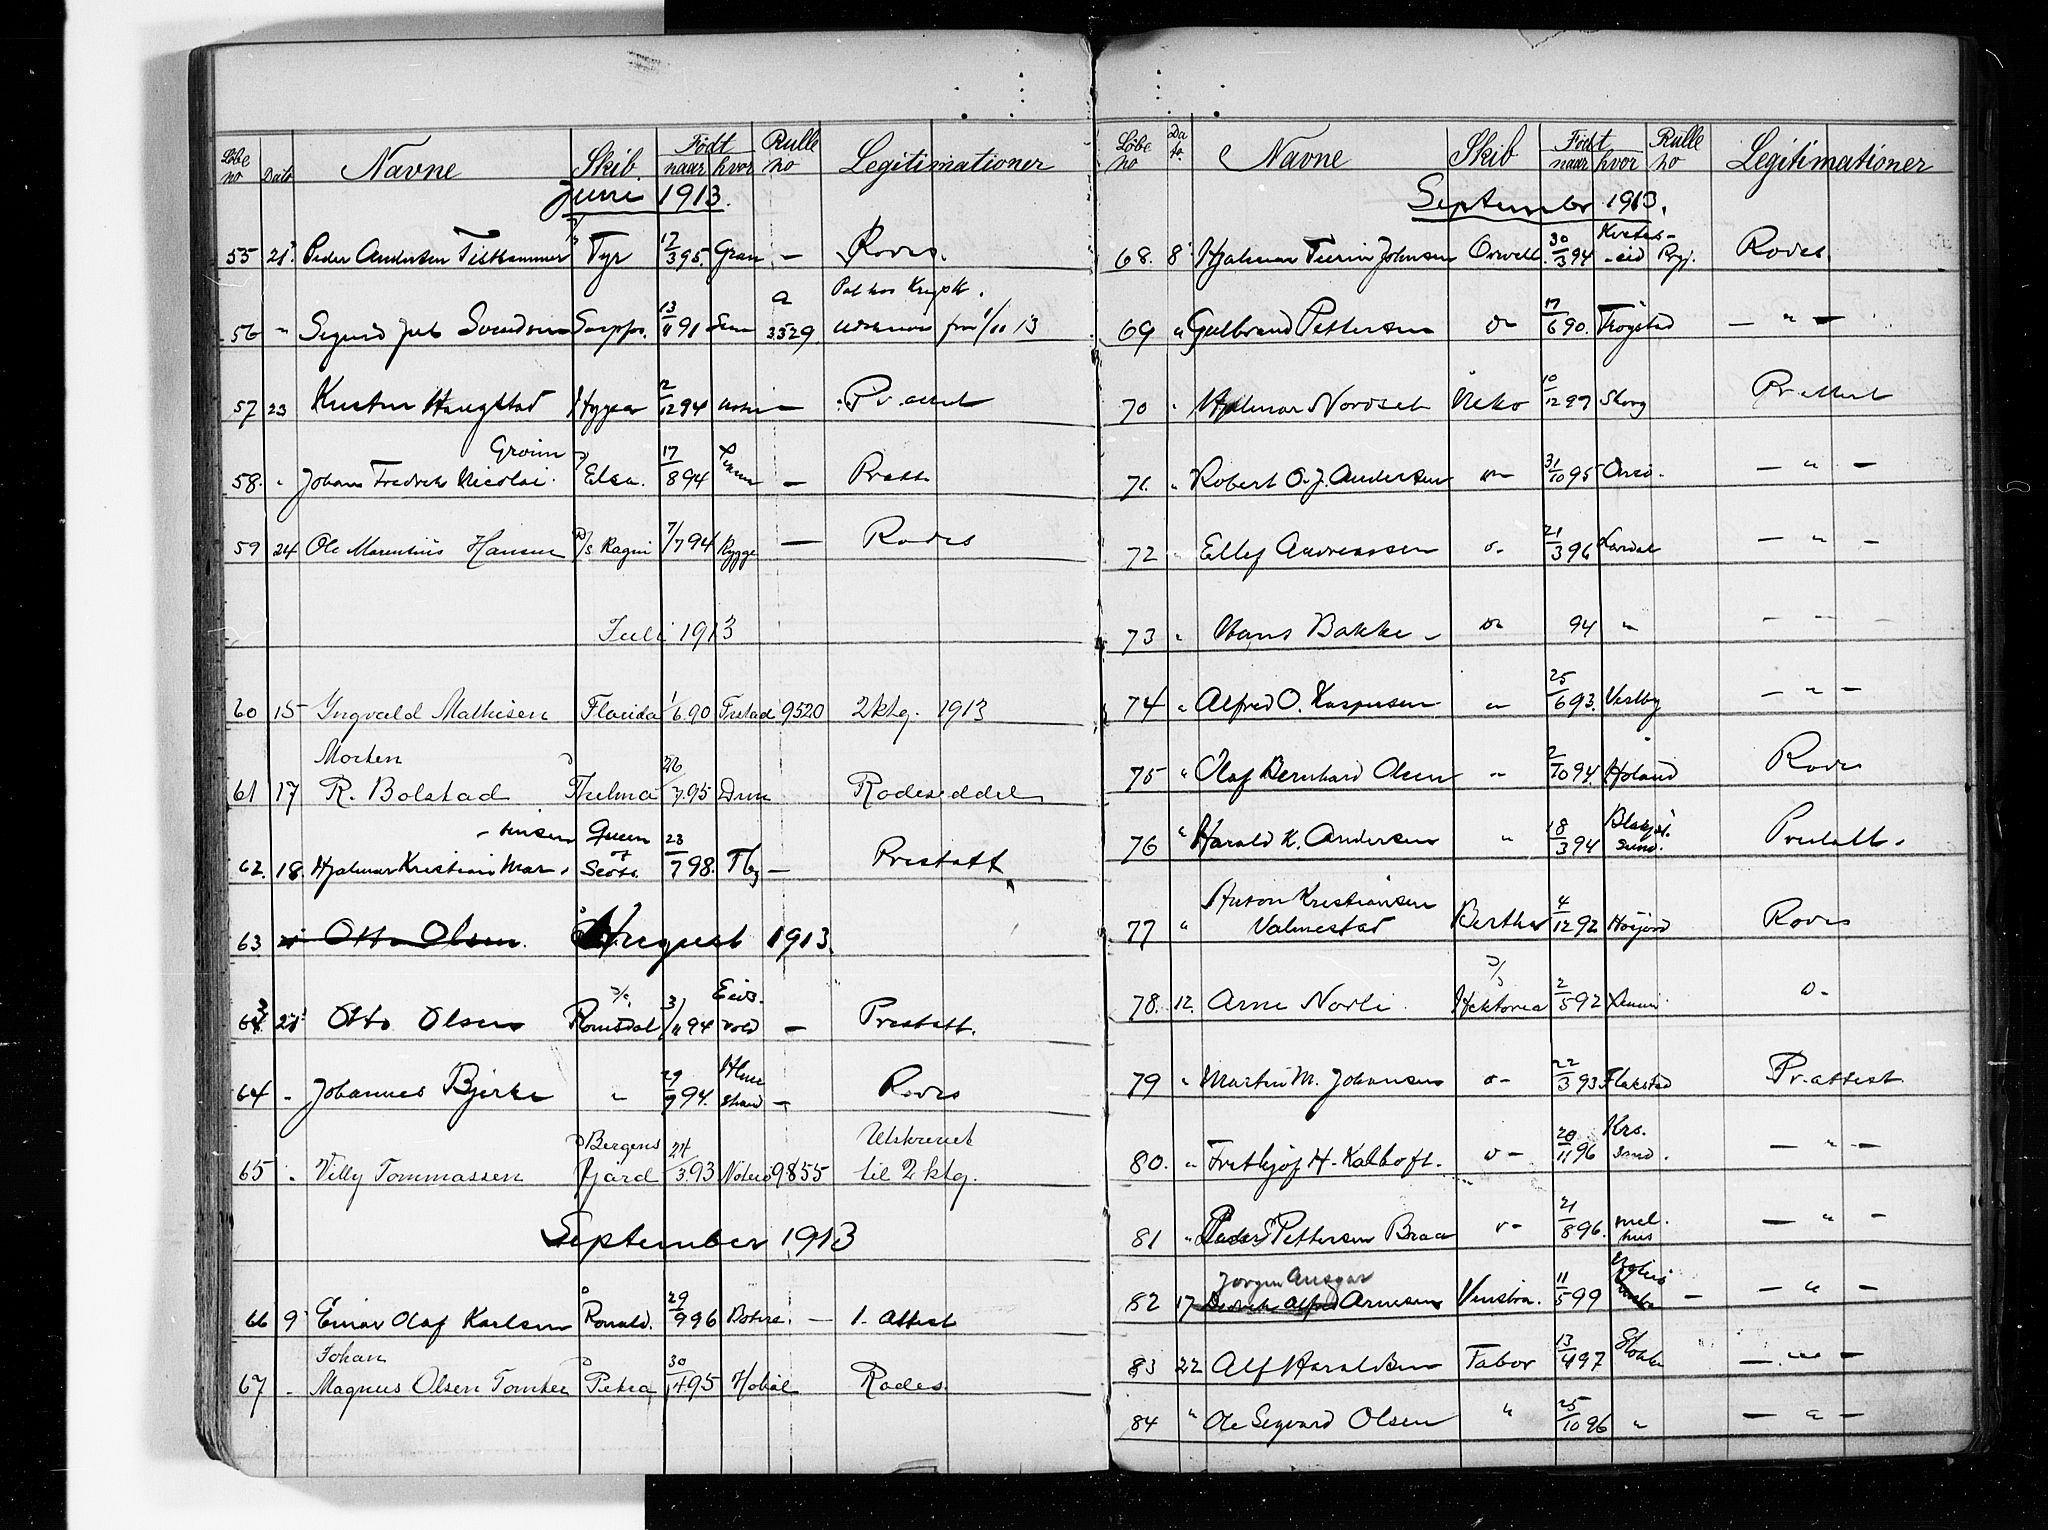 Løbe no Dato Navne Skib. Født naar hvor Rulle no Legitimationer
Juni 1913.
55 21 Peder Andersen Tyr 17/3 95. Gran — Rodes.
56 " Sigurd Sarpfos. 13/11 91 Sem a 3529 fra 1/11 13
57 23 Haugstad 12/12 94 — Pr. att
58. " Johan Fredrik Nicolai Elsa. 17/8 94 — Pr att
59 24 Ole Marentius Hansen D/s Ragni 7/7 94 Rygge — Rodes
Juli 1913
60 15 Ingvald Mathisen Florida 1/6 90 Frstad 9520 2 ktg. 1913
Morten
61 17 R. Bolstad Thelma 26/7 95 Drm Rodeseddel
- tinsen Queen
62. 18. Hjalmar Kristian Mar- of Scots. 23/7 98. Tbg — Prestatt
63 Otto Olsen. August 1913.
63 21 Otto Olsen Romsdal 3/11 94 Eidsvold — Prestatt.
64 " Johannes Bjerke " 29/9 94. Holmestrand — Rodes
65 " Villy Tommassen Bergensfjord 24/3 93 Nøterø 9855 Utskrevet til 2 ktg.
September 1913
66 9 Einar Olaf Karlsen Ronald. 29/9 96 Botne. — 1. Attest
Johan
67 " Magnus Olsen Tomter Petra 30/1 95 Hobøl Rodes.
Løbe no Dato. Navne Skib Født naar hvor Rulle no Legitimationer
September 1913.
68. 8 Hjalmar Johnsen Orwell. 30/3 94 Kviteseid Rodes.
69 " Gulbrand Pettersen do 17/6 90. Trøgstad — " —
70 " Hjalmar Nordseth Neko 10/12 97 Skog Pr attest
71. " Robert O. J. Andersen do 31/10 95 — " —
72 " Ellef Andreassen do 21/3 96 Lardal — " —
73 " Hans Bakke - do 94 " — " —
74 " Alfred O. Kaspersen " 25/6 93. Vestby — " —
75 " Olaf Bernhard Olsen " 2/10 94. Høland Rodes
76 " Harald K. Andersen " 18/3 94 Prestatt.
77 " Anton Kristiansen Valmestad Berthe 4/12 92 Høijord Rodes
78. 12. Arne Norli. D/s Hektoria 2/5 92 do
79 " Martin M. Johansen do 22/3 93 Flakstad Pr. attest
80. " Fritkjof H. Kalhoft. do 20/11 96 Krs. sand. — " —
81 " Pettersen Braa do 21/8 96. Melhus — " —
Jørgen Ansgar
82 17 Alfred Arnesen Vinstra. 11/5 99 — — " —
83 22 Alf Haraldsen Tabor 13/4 97 Stokke — " —
84 " Ole Sigvard Olsen " 25/10 96 " — " —